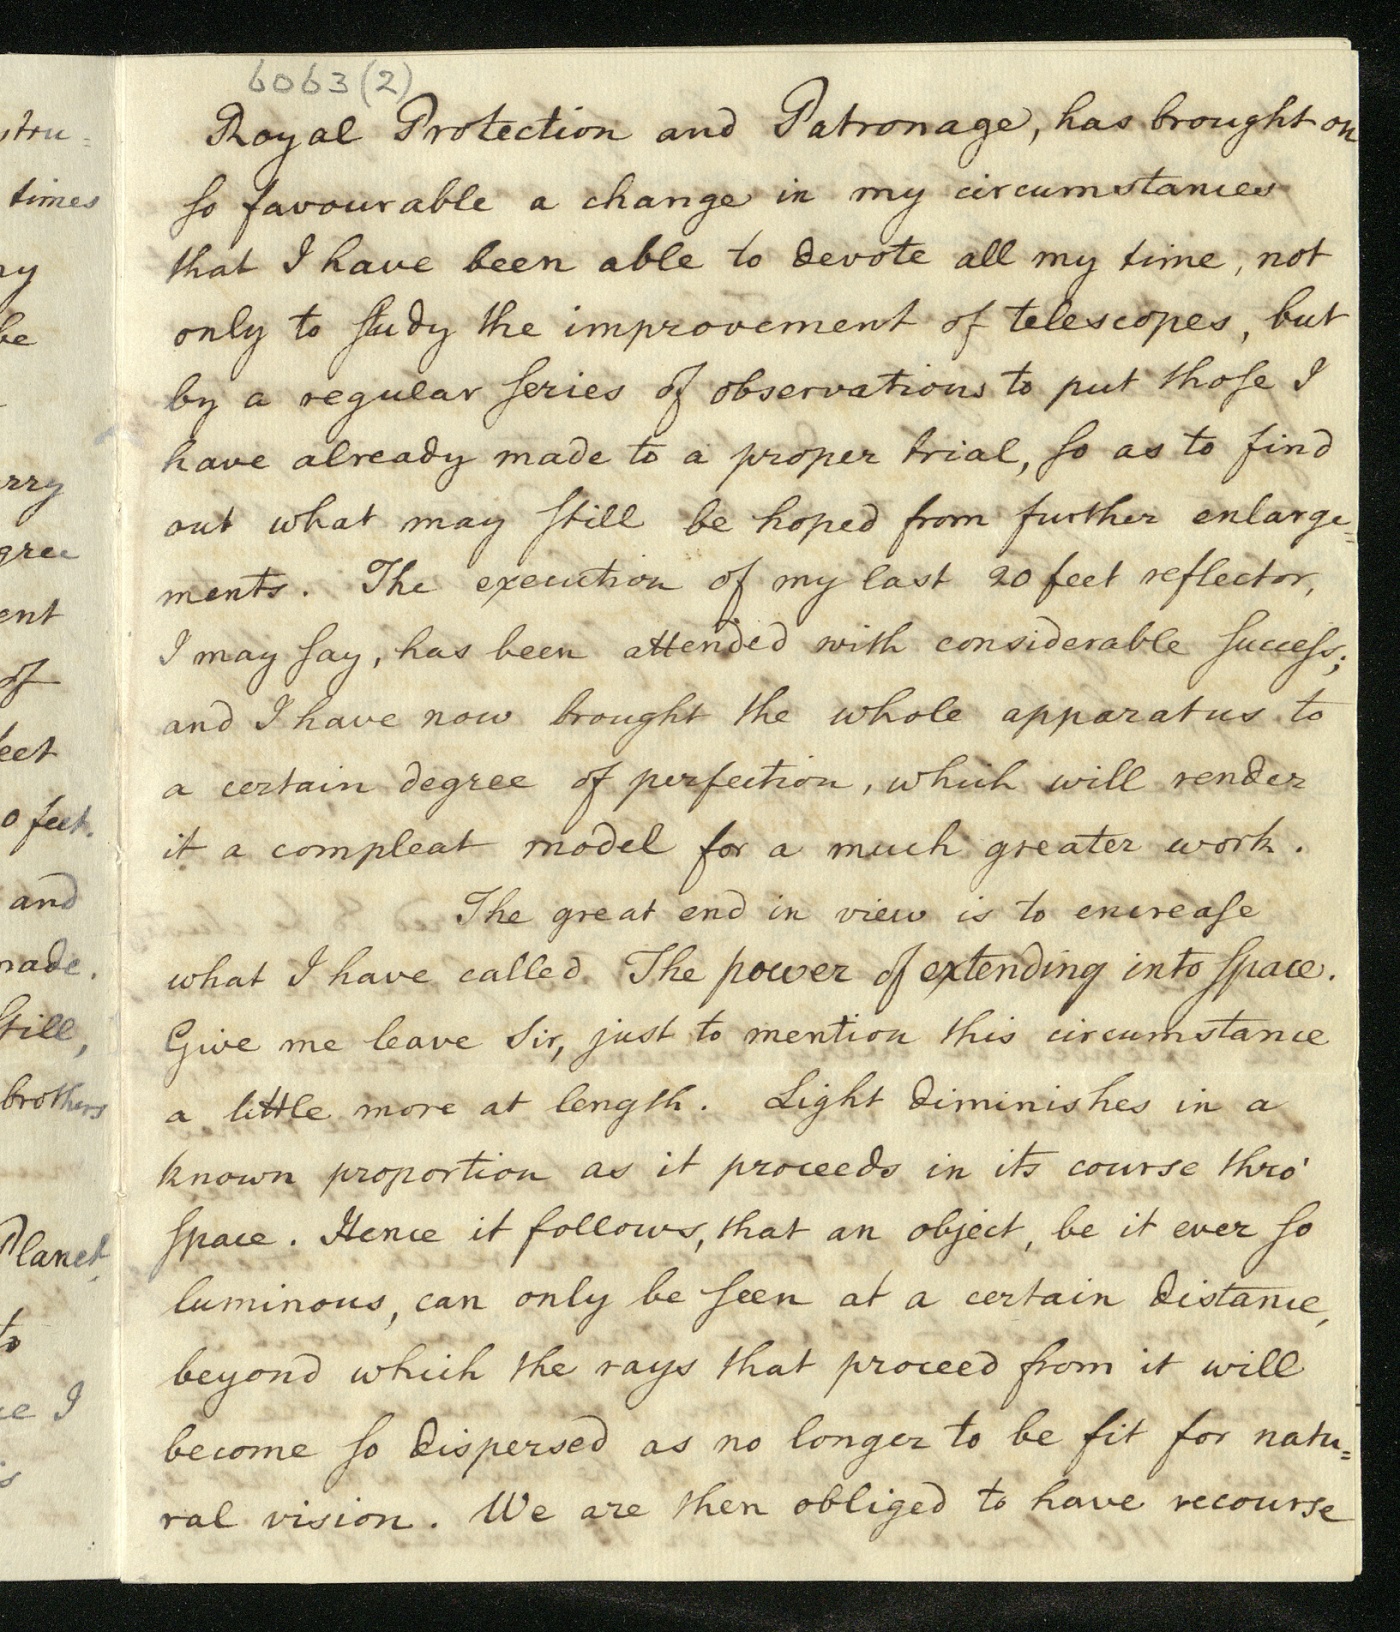 stru=
times
ny
be
rry
gree
ent
of
feet
0 feet.
and
made.
Still,
brothers
Planet,
to
ce I
is
6063(2)
Royal Protection and Patronage, has brought on
so favourable a change in my circumstances
that I have been able to devote all my time, not
only to study the improvement of telescopes, but
by a regular series of observations to put those I
have already made to a proper trial, so as to find
out what may still be hoped from further enlarge=
ments. The execution of my last 20 feet reflector,
I may say, has been attended with considerable success;
and I have now brought the whole apparatus to
a certain degree of perfection, which will render
it a compleat model for a much greater work.
The great end in view is to encrease
what I have called The power of extending into space.
Give me leave Sir, just to mention this circumstance
a little more at length. Light diminishes in a
known proportion as it proceeds in its course thro'
space. Hence it follows, that an object, be it ever so
luminous, can only be seen at a certain distance,
beyond which the rays that proceed from it will
become so dispersed as no longer to be fit for natu=
ral vision. We are then obliged to have recourse